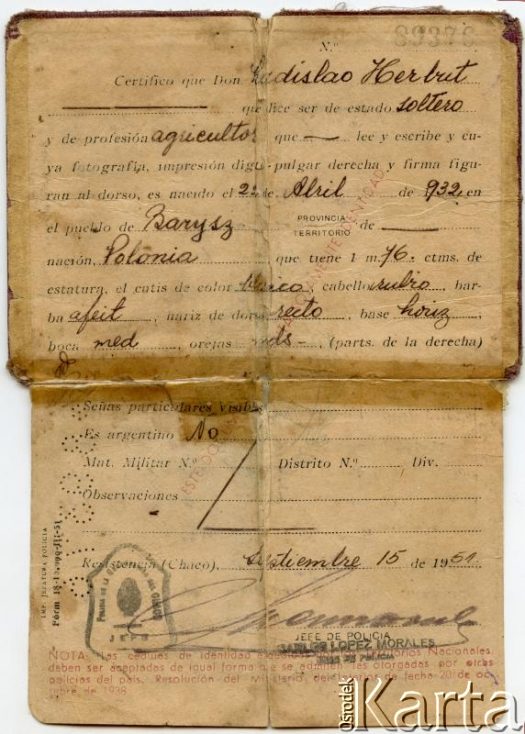 N.º 33373
Certifico que Don Ladislao Herbut
que dice ser de estado soltero
y de profesión agricultor que lee y escribe y cu-
ya fotografía, impresión dígito-pulgar derecha y firma figu-
ran al dorso, es nacido el 22 de Abril de 932 en
el pueblo de Barysz PROVINCIA TERRITORIO de
nación, Polonia que tiene 1 m. 76. ctms. de
estatura, el cutis de color blanco, cabello rubio, bar-
ba afeit, nariz de dorso recto, base horiz,
boca med, orejas (parts. de la derecha)
Señas particulares visibles
Es argentino No
Mat. Militar N.º Distrito N.º Div.
Observaciones
Resistencia (Chaco), Septiembre 15 de 1951
JEFE DE POLICIA
CARLOS LOPEZ MORALES
JEFE DE POLICIA
NOTA: Las cédulas de identidad Territorios Nacionales,
deben ser aceptadas de igual forma que se admiten las otorgadas por otras
policías del país. Resolución del Ministerio del Interior de fecha 20 de oc-
tubre de 1938
IMP. JEFATURA POLICIA
JEFE
ośrodek Karta